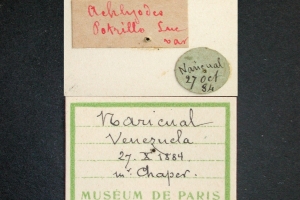 Achlyodes
Potrillo Luc
var
Naricual
27 oct
84
Naricual
Venezuela
27. X. 1884
mr Chaper.
MUSÉUM DE PARIS